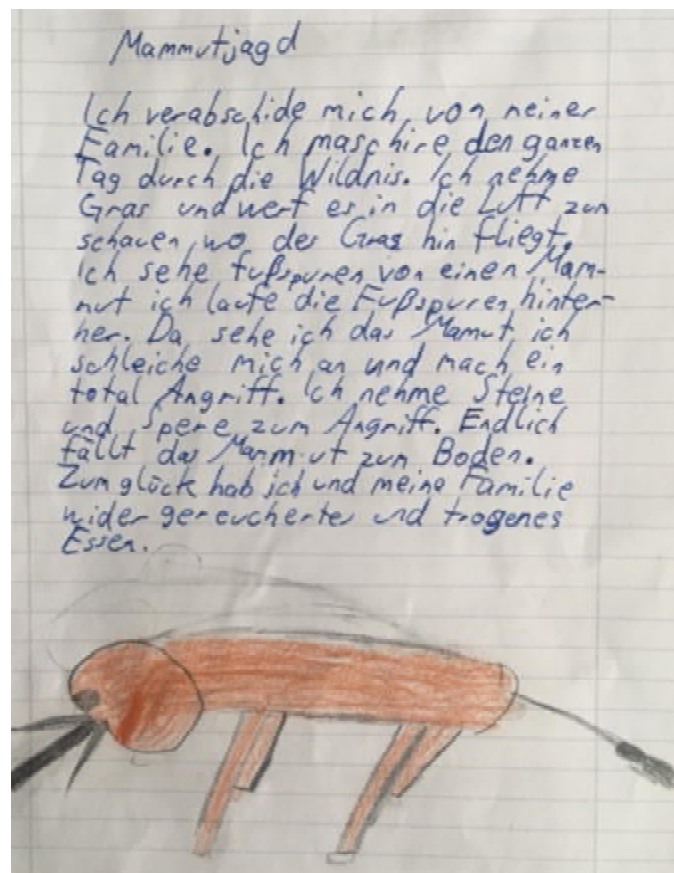 Mammutjagd
Ich verabschide mich von meiner
Familie. Ich maschire den ganzen
Tag durch die Wildnis. Ich nehme
Gras und werf es in die Luft zum
schauen wo das Gras hin fliegt.
Ich sehe fußspuren von einen Mam-
mut ich laufe die Fußspuren hinter-
her. Da sehe ich das Mamut ich
schleiche mich an und mach ein
total Angriff. Ich nehme Steine
und Spere zum Angriff. Endlich
fällt das Mammut zum Boden.
Zum glück hab ich und meine Familie
wider gereuchertes und trogenes
Essen.